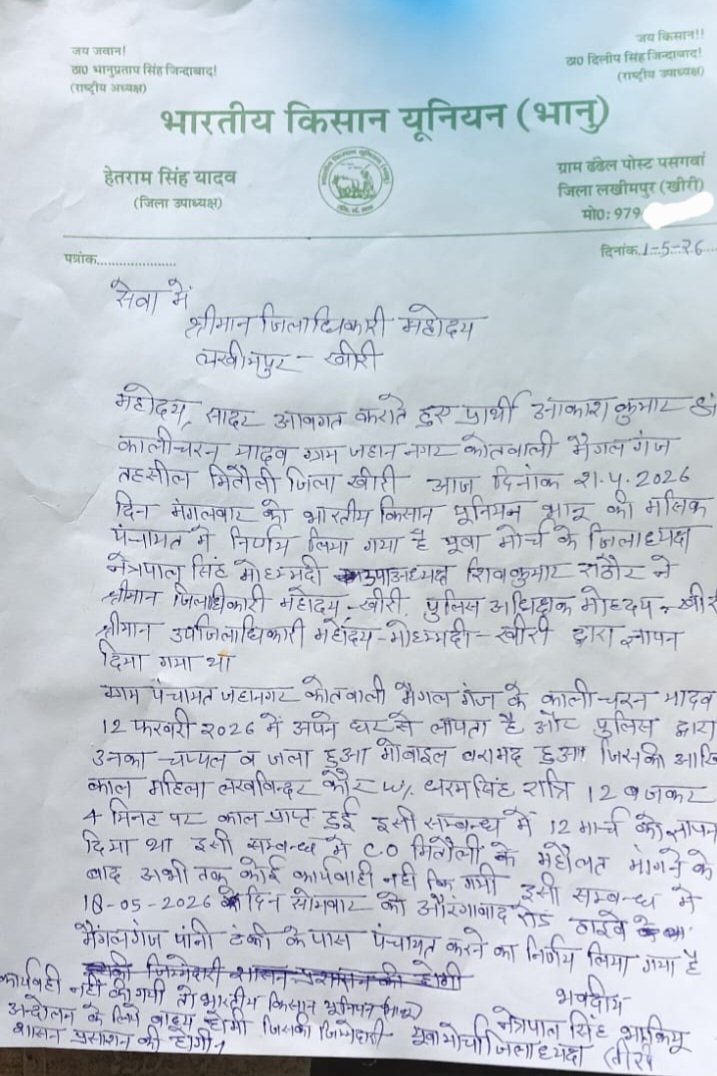 जय जवान!
ठा० भानुप्रताप सिंह जिन्दाबाद!
(राष्ट्रीय अध्यक्ष)
जय किसान!!
ठा० दिलीप सिंह जिन्दाबाद!
(राष्ट्रीय उपाध्यक्ष)
भारतीय किसान यूनियन (भानु)
हेतराम सिंह यादव
(जिला उपाध्यक्ष)
ग्राम ढंढेल पोस्ट पसगवां
जिला लखीमपुर (खीरी)
मो०: 979
पत्रांक....................
दिनांक. 1-5-26
सेवा में
श्रीमान जिलाधिकारी महोदय
लखीमपुर - खीरी
महोदय, सादर आवगत कराते हुए प्रार्थी आकाश कुमार
कालीचरन यादव ग्राम जहान नगर कोतवाली मैगल गंज
तहसील मितौली जिला खीरी आज दिनांक 21.4.2026
दिन मंगलवार को भारतीय किसान यूनियन भानू की मासिक
पंचायत में निर्णय लिया गया है युवा मोर्चा के जिलाध्यक्ष
नेत्रपाल सिंह मोहम्मदी उपाअध्यक्ष शिवकुमार राठौर ने
श्रीमान जिलाधिकारी महोदय-खीरी. पुलिस अधिक्षक मोहदय - खीरी
श्रीमान उपजिलाधिकारी महोदय-मोहम्मदी-खीरी द्वारा ज्ञापन
दिया गया था
ग्राम पंचायत जहानगर कोतवाली मैगल गंज के काली चरन यादव
12 फरवरी 2026 में अपने घर से लापता है और पुलिस द्वारा
उनका चप्पल व जला हुआ मोबाइल बरामद हुआ जिसकी आखि
काल महिला लखविन्दर कौर W/ धरम सिंह रात्रि 12 बजकर
4 मिनट पर काल प्राप्त हुई इसी सम्बन्ध में 12 मार्च को ज्ञापन
दिया था इसी सम्बन्ध में C.O मितौली के मोहलत मांगने के
बाद अभी तक कोई कार्यवाही नही कि गयी इसी सम्बन्ध में
18-05-2026 के दिन सोमवार को औरंगाबाद रोड हाइवे
मैंगलगंज पांनी टंकी के पास पंचायत करने का निर्णय लिया गया है
जिम्मेदारी शासन प्रशासन की होगी
कार्यवाही नही की गयी तो भारतीय किसान यूनियन (भानू)
अन्दोलन के लिये बाध्य होगी जिसकी जिम्मेदारी
शासन प्रसाशन की होगी।
भवदीय
नेत्रपाल सिंह भाकियू
युवा मोर्चा जिलाध्यक्ष